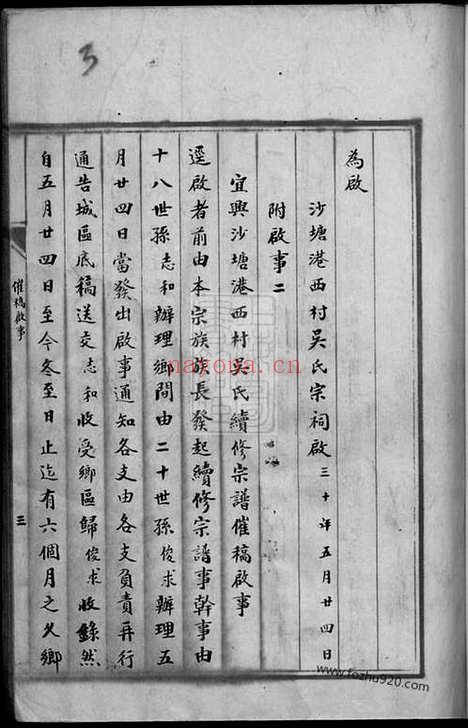 為啟
沙塘港西村吳氏宗祠啟 三十年五月廿四日
附啟事二
宜興沙塘港西村吳氏續修宗譜催稿啟事
逕啟者前由本宗族族長發起續修宗譜事幹事由
十八世孫志和辦理鄉間由二十世孫俊求辦理五
月廿四日當發出啟事通知各支由各支負責再行
通告城區底稿送交志和收受鄉區歸俊求收錄然
自五月廿四日至今冬至日止迄有六個月之久鄉
催稿啟事
三
nayona.cn
www.fozhu920.com